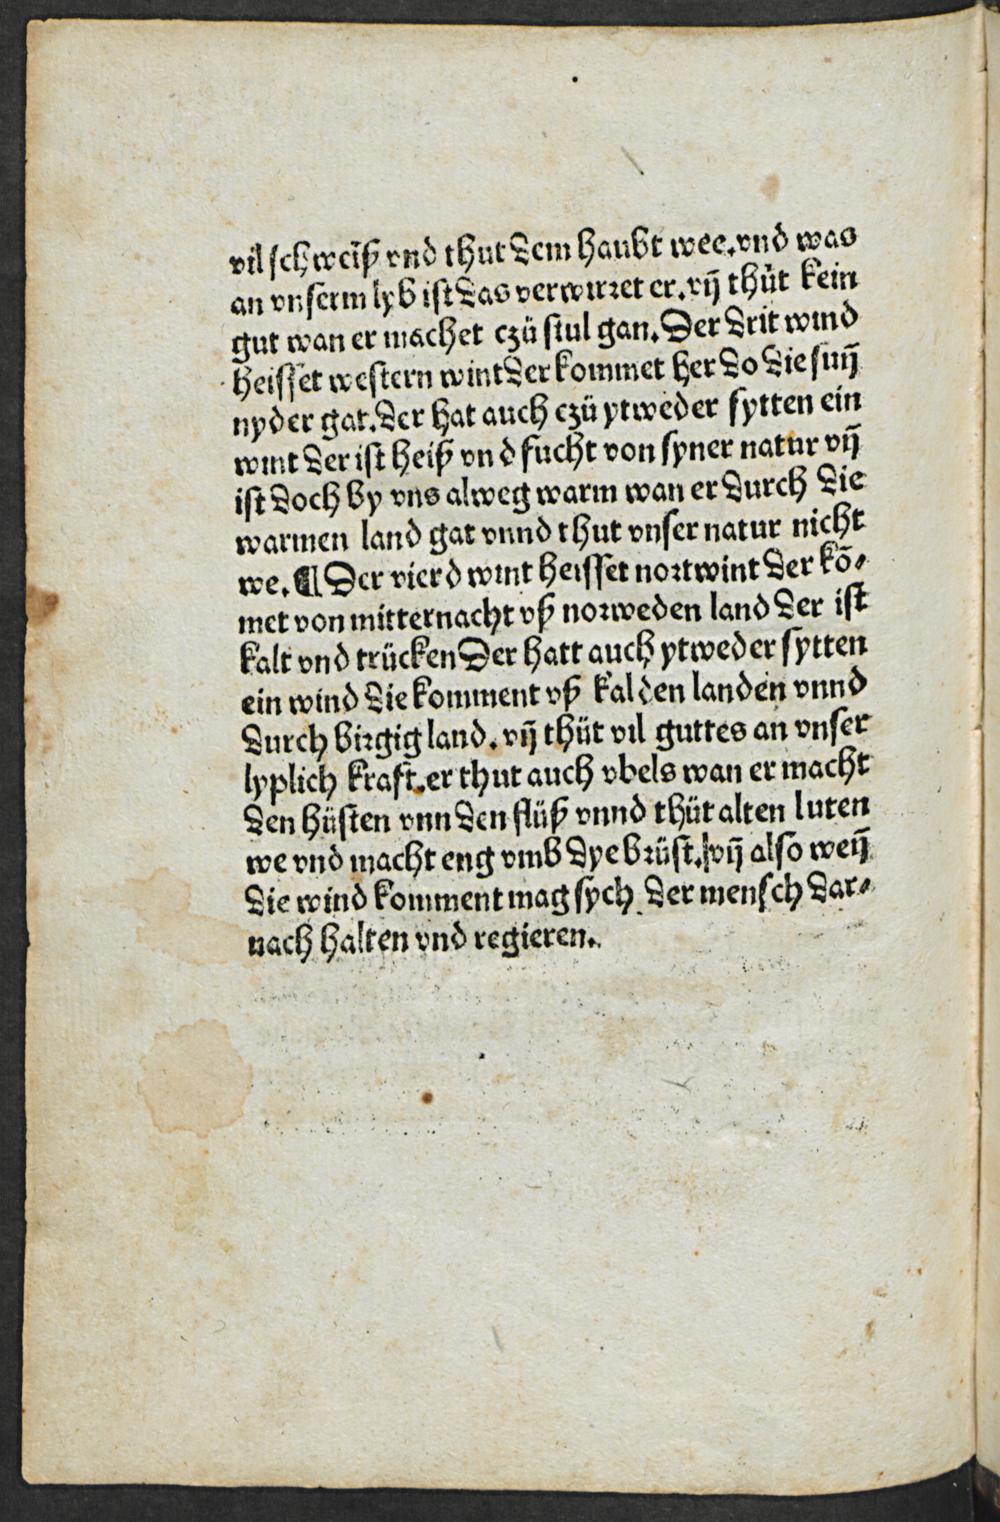 vil schweiß vnd thut dem haubt wee.vnd was
an vnserm lyb ist das verwirret er.vn̄ thüt kein
gut wan er machet czü stul gan.Der drit wind
heisset western wint der kommet her do die sun̄
nyder gat.der hat auch czü ytweder sytten ein
wint der ist heiß vnd fucht von syner natur vn̄
ist doch by vns alweg warm wan er durch die
warmen land gat vnnd thut vnser natur nicht
we.¶ Der vierd wint heisset nortwint der kō⸗
met von mitternacht vß norweden land der ist
kalt vnd trücken Der hatt auch ytweder sytten
ein wind die komment vß kalden landen vnnd
durch birgig land.vn̄ thüt vil guttes an vnser
lyplich kraft.er thut auch vbels wan er macht
den hüsten vnn den flüß vnnd thüt alten luten
we vnd macht eng vmb dye brüst.vn̄ also wen̄
die wind komment mag sych der mensch dar⸗
nach halten vnd regieren.